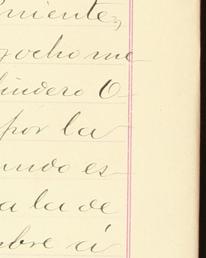 niente,
ocho me
lindero O-
por la
undo es-
a la de
mbre á